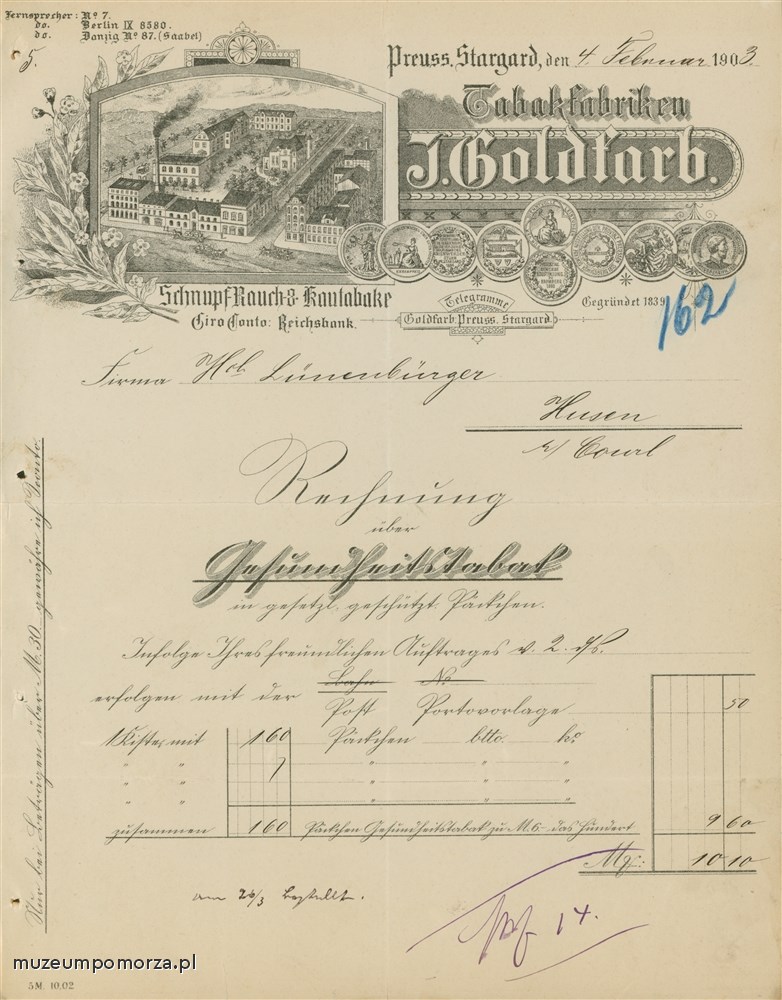 Fernsprecher: Nº 7.
do. Berlin IX 8580.
do. Danzig Nº 87. (Saabel)
5.
Preuss. Stargard, den 4. Februar 1903.
Tabakfabriken
J. Goldfarb.
Schnupf Rauch & Kautabake
Giro Conto: Reichsbank.
Telegramme
Goldfarb, Preuss. Stargard.
Gegründet 1839
162
Firma Hch. Lünenbürger
Husen
b/ Courl
Rechnung
über
Gesundheitstabak
in gesetzl. geschützt. Päckchen.
Infolge Ihres freundlichen Auftrages v. 2. ds.
erfolgen mit der Bahn No
Post Portovorlage 50
1 Kiste mit 160 Päckchen btto. ko
" " " "
" " " "
" " " "
zusammen 160 Päckchen Gesundheitstabak zu M. 6.- das Hundert 9 60
Mk: 10 10
am 26/3 bezahlt.
14.
Nur bei Beträgen über M. 30. gewähre ich Sconto.
5M. 10.02
muzeumpomorza.pl